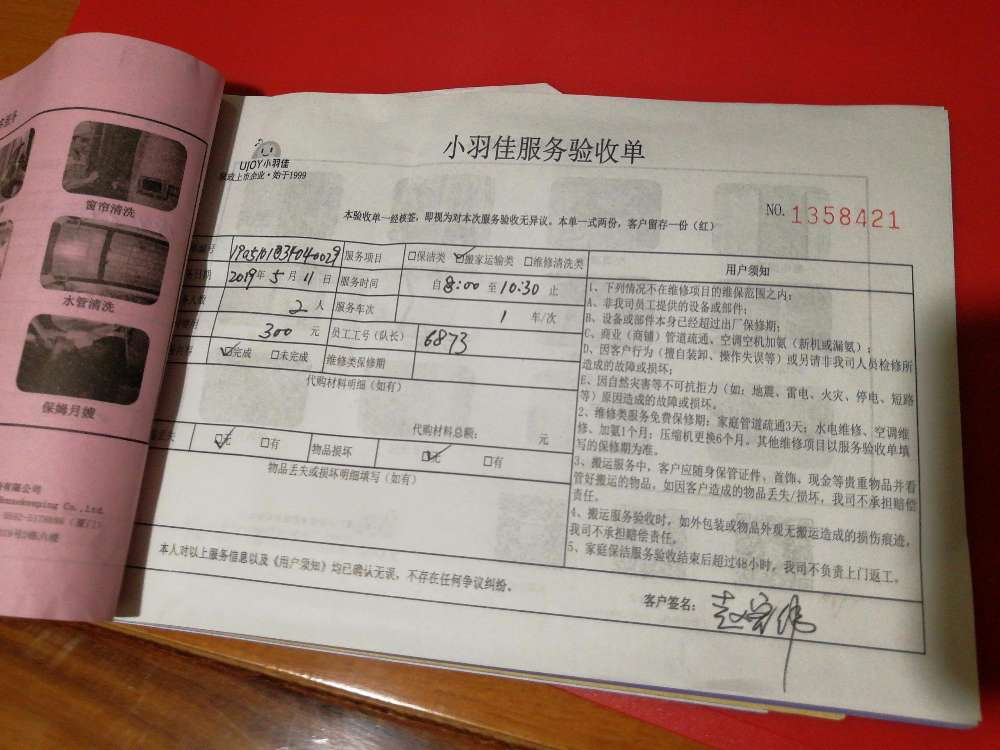 窗帘清洗
水管清洗
保姆月嫂
有限公司
Housekeeping Co.,Ltd.
UJOY小羽佳
家政上市企业·始于1999
小羽佳服务验收单
本验收单一经核签,即视为对本次服务验收无异议。本单一式两份,客户留存一份(红)
NO.1358421
编号
服务项目 □保洁类 ☑搬家运输类 □维修清洗类
日期 2019年5月11日 服务时间 自8:00至10:30止
人数 2人 服务车次 1车/次
300元 员工工号(队长) 6873
☑完成 □未完成 维修类保修期
代购材料明细(如有)
代购材料总额: 元
丢失 ☑无 □有 物品损坏 ☑无 □有
物品丢失或损坏明细填写(如有)
用户须知
1、下列情况不在维修项目的维保范围之内:
A、非我司员工提供的设备或部件;
B、设备或部件本身已经超过出厂保修期;
C、商业(商铺)管道疏通、空调空机加氨(新机或漏氨);
D、因客户行为(擅自装卸、操作失误等)或另请非我司人员检修所
造成的故障或损坏;
E、因自然灾害等不可抗拒力(如:地震、雷电、火灾、停电、短路
等)原因造成的故障或损坏。
2、维修类服务免费保修期:家庭管道疏通3天;水电维修、空调维
修、加氨1个月;压缩机更换6个月。其他维修项目以服务验收单填
写的保修期为准。
3、搬运服务中,客户应随身保管证件、首饰、现金等贵重物品并看
管好搬运的物品,如因客户造成的物品丢失/损坏,我司不承担赔偿
责任。
4、搬运服务验收时,如外包装或物品外观无搬运造成的损伤痕迹,
我司不承担赔偿责任。
5、家庭保洁服务验收结束后超过48小时,我司不负责上门返工。
本人对以上服务信息以及《用户须知》均已确认无误,不存在任何争议纠纷。
客户签名: